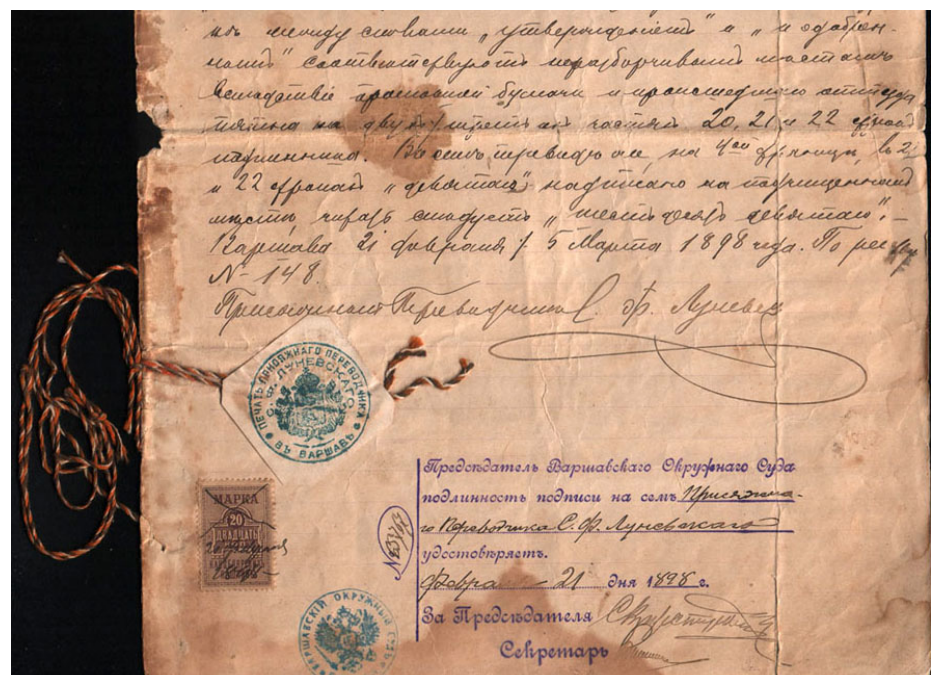 между словами „утвержденiемъ" и „и одобрен-
нымъ" соотвѣтствуютъ неразборчивымъ мѣстамъ
вслѣдствiе бумаги и происшедшаго оттуда
пятна на двухъ частяхъ 20, 21 и 22 строкъ
подлинника. на 4ой страницѣ, въ 21
и 22 строкахъ „девятаго" надписано на подчищенномъ
мѣстѣ, читать слѣдуетъ „шестьдесятъ девятаго".-
Варшава 21 Февраля / 5 Марта 1898 года. По реестру
N- 148.
Присяжный Переводчикъ С. Ф. Луневскiй
ПЕЧАТЬ ПРИСЯЖНАГО ПЕРЕВОДЧИКА
С. Ф. ЛУНЕВСКАГО
ВЪ ВАРШАВѢ
МАРКА
20
ДВАДЦАТЬ
1898
Предсѣдатель Варшавскаго Окружнаго Суда
подлинность подписи на семъ Присяжна-
го Переводчика С. Ф. Луневскаго
удостовѣряетъ.
Февраля 21 дня 1898 г.
За Предсѣдателя
Секретарь
ВАРШАВСКIЙ ОКРУЖНЫЙ СУДЪ